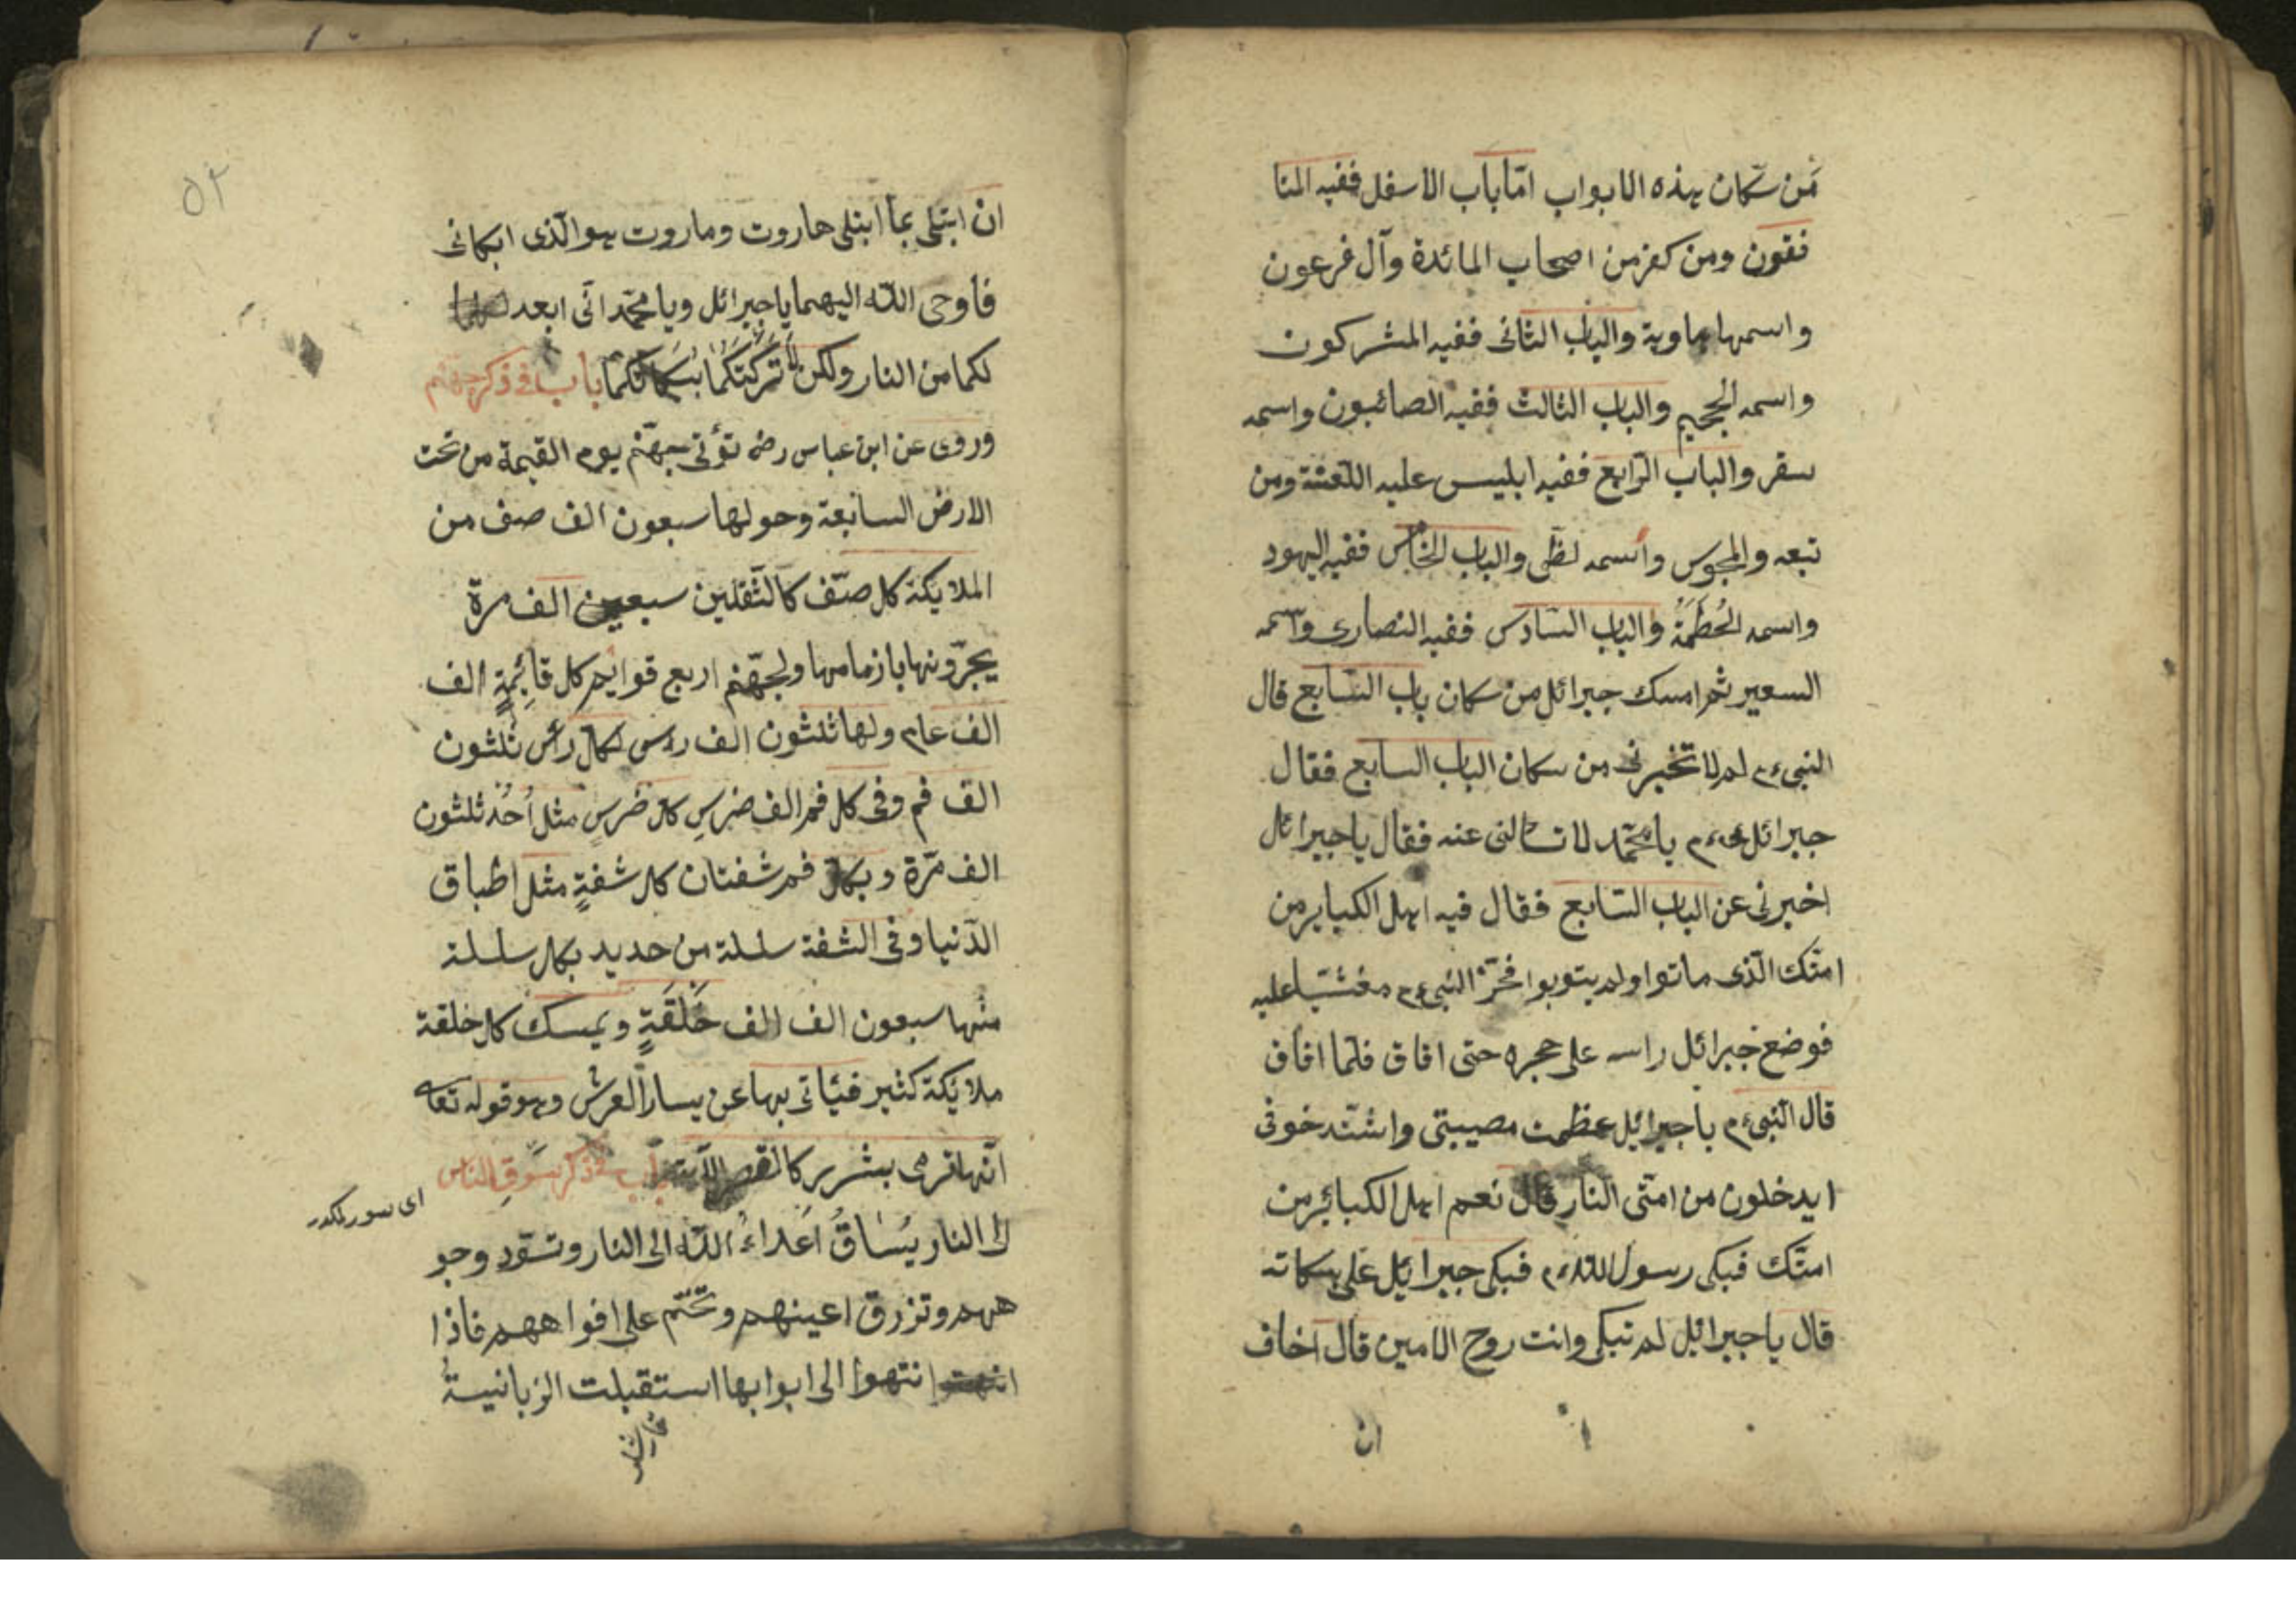 مَن سكان هذه الابواب امّا باب الاسفل ففيه المنا
فقون ومن كفر من اصحاب المائدة وآل فرعون
واسمها هاوية والباب الثانى ففيه المشركون
واسمه الجحيم والباب الثالث ففيه الصائبون واسمه
سقر والباب الرّابع ففيه ابليس عليه اللعنة ومن
تبعه والمجوس واسمه لظى والباب الخامس ففيه اليهود
واسمه الحُطَمَةُ والباب السّادس ففيه النصارى واسمه
السعير ثم امسك جبرائل من سكان باب السّابع قال
النبى ءم لم لا تخبرنى من سكان الباب السابع فقال
جبرائل ءم يا محمّد لا تسألنى عنه فقال يا جبرائل
اخبرنى عن الباب السّابع فقال فيه اهل الكباير من
امتّك الّذى ماتوا ولم يتوبوا فخرّ النبى ءم مغشيّا عليه
فوضع جبرائل راسه على حجره حتى افاق فلمّا افاق
قال النّبى ءم يا جبرائيل عظمت مصيبتى واشتّد خوفى
ايدخلون من امتّى النار قال نعم اهل الكبائر من
امتّك فبكى رسول الله ءم فبكى جبرائيل على بكائه
قال يا جبرائيل لم تبكى وانت روح الامين قال اخاف
ان
٥٢
ان ابتلى بما ابتلى هاروت وماروت هو الّذى ابكانى
فاوحى اللّه اليهما يا جبرائل ويا محمّد انّى ابعد
لكما من النار ولكن لا تركتكما ببكائكما باب فى ذكر جهنم
وروى عن ابن عباس رضه تؤتى جهنّم يوم القيمة من تحت
الارض السابعة وحولها سبعون الف صف من
الملايكة كل صّف كالثّقلين سبعين الف مرة
يجرّونها بازمامها ولجهّنم اربع قوايم كل قائِمةٍ الف
الف عام ولها ثلثون الف راس لكل رأس ثلثون
الف فم وفى كل فم الف ضرسِ كل ضرسٍ مثل اُحُد ثلثون
الف مّرة وبكل فم شفتان كل شفةٍ مثل اطباق
الدّنيا وفى الشفة سلسلة من حديد بكل سلسلة
منها سبعون الف الف حَلَقَةٍ ويمسك كل حلقة
ملايكة كثير فيأتى بها عن يسار العرش وهو قوله تعا
انّها ترمى بشرر كالقصر الآية باب فى ذكر سوق الناس
الى النار يُسَاقُ اَعداءُ اللّه الى النار وتسّود وجو
ههم وتزرق اعينهم وتختم على افواههم فاذا
انتهوا الى ابوابها استقبلت الزبانيةُ